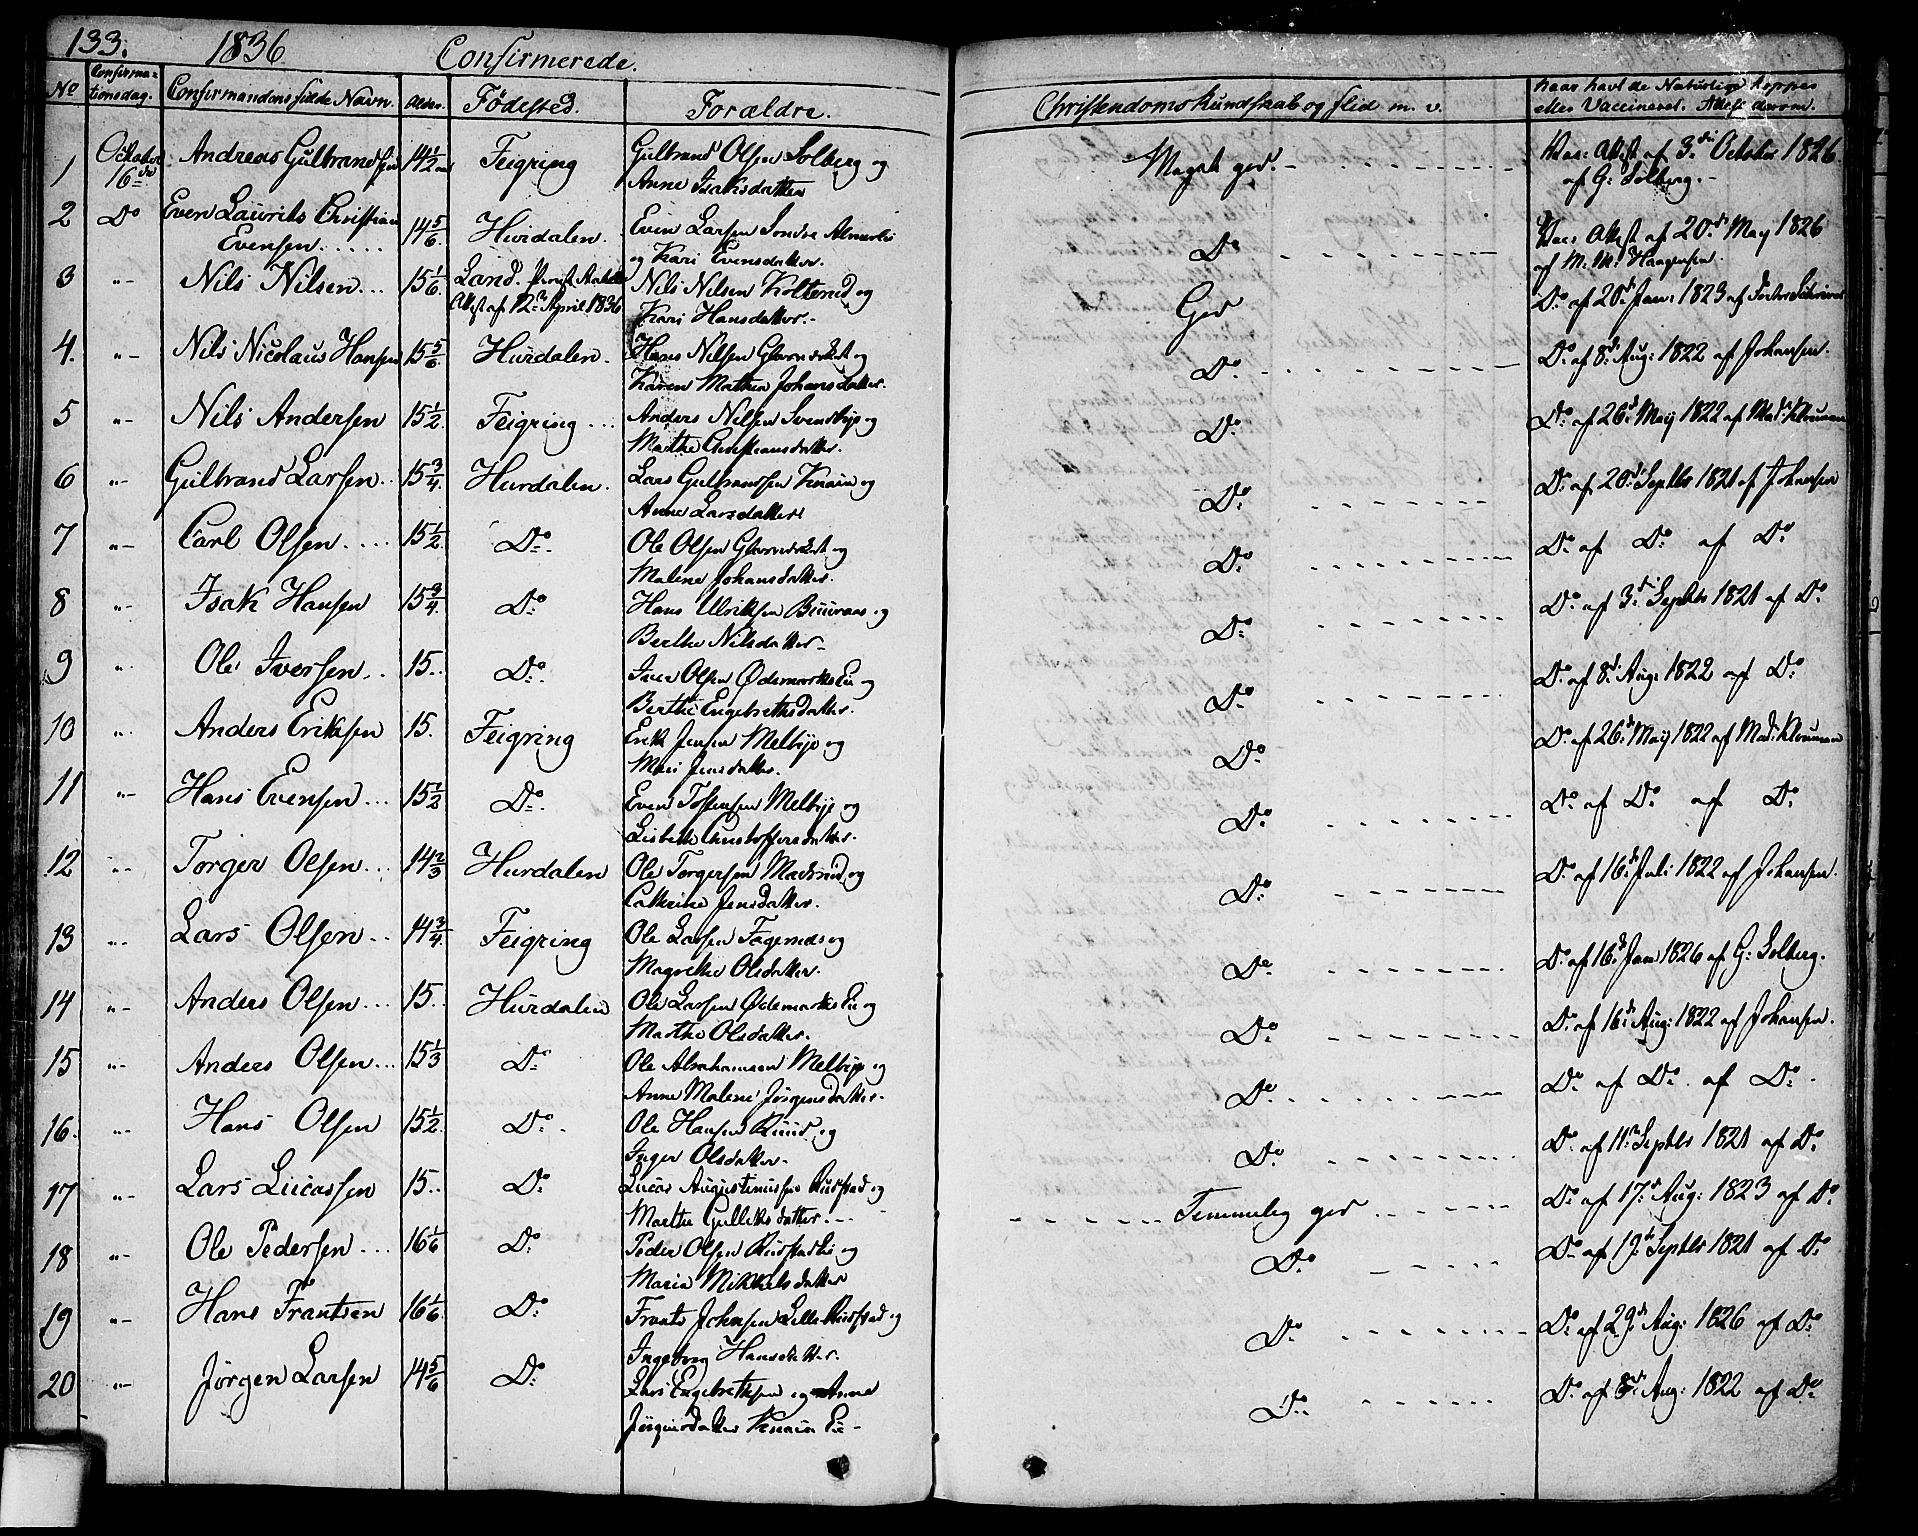 133. 1836 Confirmerede.
No Confirma=tionsdag. Confirmandens fulde Navn. Alder. Fødested. Forældre. Christendomskundskab og Flid m. v. Naar havt de Naturlige Kopper eller Vaccineret. Attest derom.
1 October 16de Andreas Gulbrandsen 14 1/2 Feigring Gulbrand Olsen Solberg og Meget god. Vac: Attest af 3die October 1826
Anne Isaksdatter af G: Solberg.
2 Do Even Laurits Christian 14 5/6. Hurdalen. Even Larsen Søndre og Do Vac: Attest af 20de May 1826
Evensen..... Kari Evensdatter. af M. M: Haagensen.
3 "- Nils Nilsen... 15 1/6. Land. Attest af 12te April 1836 Nils Nilsen og God Do af 20de Jan: 1823 af
Kari Hansdatter.-
4. "- Nils Nicolaus Hansen 15 5/6. Hurdalen. Hans Nilsen og Do. Do: af 8de Aug: 1822 af Johansen.
Karen Mathea Johansdatter.
5 "- Nils Andersen 15 1/2. Feigring... Anders Nilsen Svendbye og Do: Do: af 26de May 1822 af Mad:
Marthe Christiansdatter.
6 "- Gulbrand Larsen.. 15 3/4. Hurdalen. Lars Gulbrandsen Knaim og Do: Do: af 20de Septbr 1821 af Johansen
Anne Larsdatter
7 "- Carl Olsen.... 15 1/2. Do:. Ole Olsen og Do: Do: af Do: af Do
Malene Johansdatter.
8 "- Isak Hansen 15 3/4. Do: Hans Ulriksen og Do: Do: af 3de Septbr 1821 af Do:
Berthe Nilsdatter-
9 "- Ole Iversen.. 15.. Do:. Iver Olsen Ødemarks Eie og Do: Do: af 8de Aug: 1822 af Do:
Berthe Engebrethsdatter.
10 "- Anders Eriksen 15. Feigring Erik Jensen Melbye og Do: Do: af 26de May 1822 af Mad:
Mari Jensdatter.
11 "- Hans Evensen... 15 1/2 Do:. Even Tostensen Melbye og Do: Do: af Do: af Do:
Lisbeth Christoffersdatter.
12 "- Torger Olsen... 14 2/3 Hurdalen Ole Torgersen og Do: Do: af 16de Juli 1822 af Johansen.
Cathrine Jensdatter.
13 "- Lars Olsen.. 14 3/4. Feigring Ole Larsen og Do: Do: af 16de Jan 1826 af G: Solberg.
Magrethe Olsdatter.
14 "- Anders Olsen... 15.. Hurdalen Ole Larsen Ødemarks Eie og Do: Do: af 16de Aug: 1822 af Johansen.
Marthe Olsdatter.
15 "- Anders Olsen... 15 1/3 Do: Ole Abrahamsen Melbye og Do: Do: af Do: af Do: .
Anne Malene Jørgensdatter.
16. "- Hans Olsen 15 1/2. Do:. Ole Hansen Ruud og Do: Do: af 11te Septbr 1821 af Do:
Inger Olsdatter.
17 "- Lars Lucassen 15.. Do: Lucas Augustinussen Rustad og Temmelig god Do: af 17de Aug: 1823 af Do:
Marthe Gulliksdatter.
18 "- Ole Pedersen... 16 1/6 Do: Peder Olsen Rustad Eie og Do: Do: af 19de Septbr 1821 af Do:
Maria Mikkelsdatter
19 "- Hans Frantsen 16 1/6. Do: Frants Johnsen Lille Rustad og Do: Do: af 29de Aug: 1826 af Do:
Ingeborg Hansdatter.
20 "- Jørgen Larsen 14 5/6 Do: Lars Engebrethsen og Anne Do: Do: af 8de Aug: 1822 af Do:
Jørgensdatter Knaim Eie-